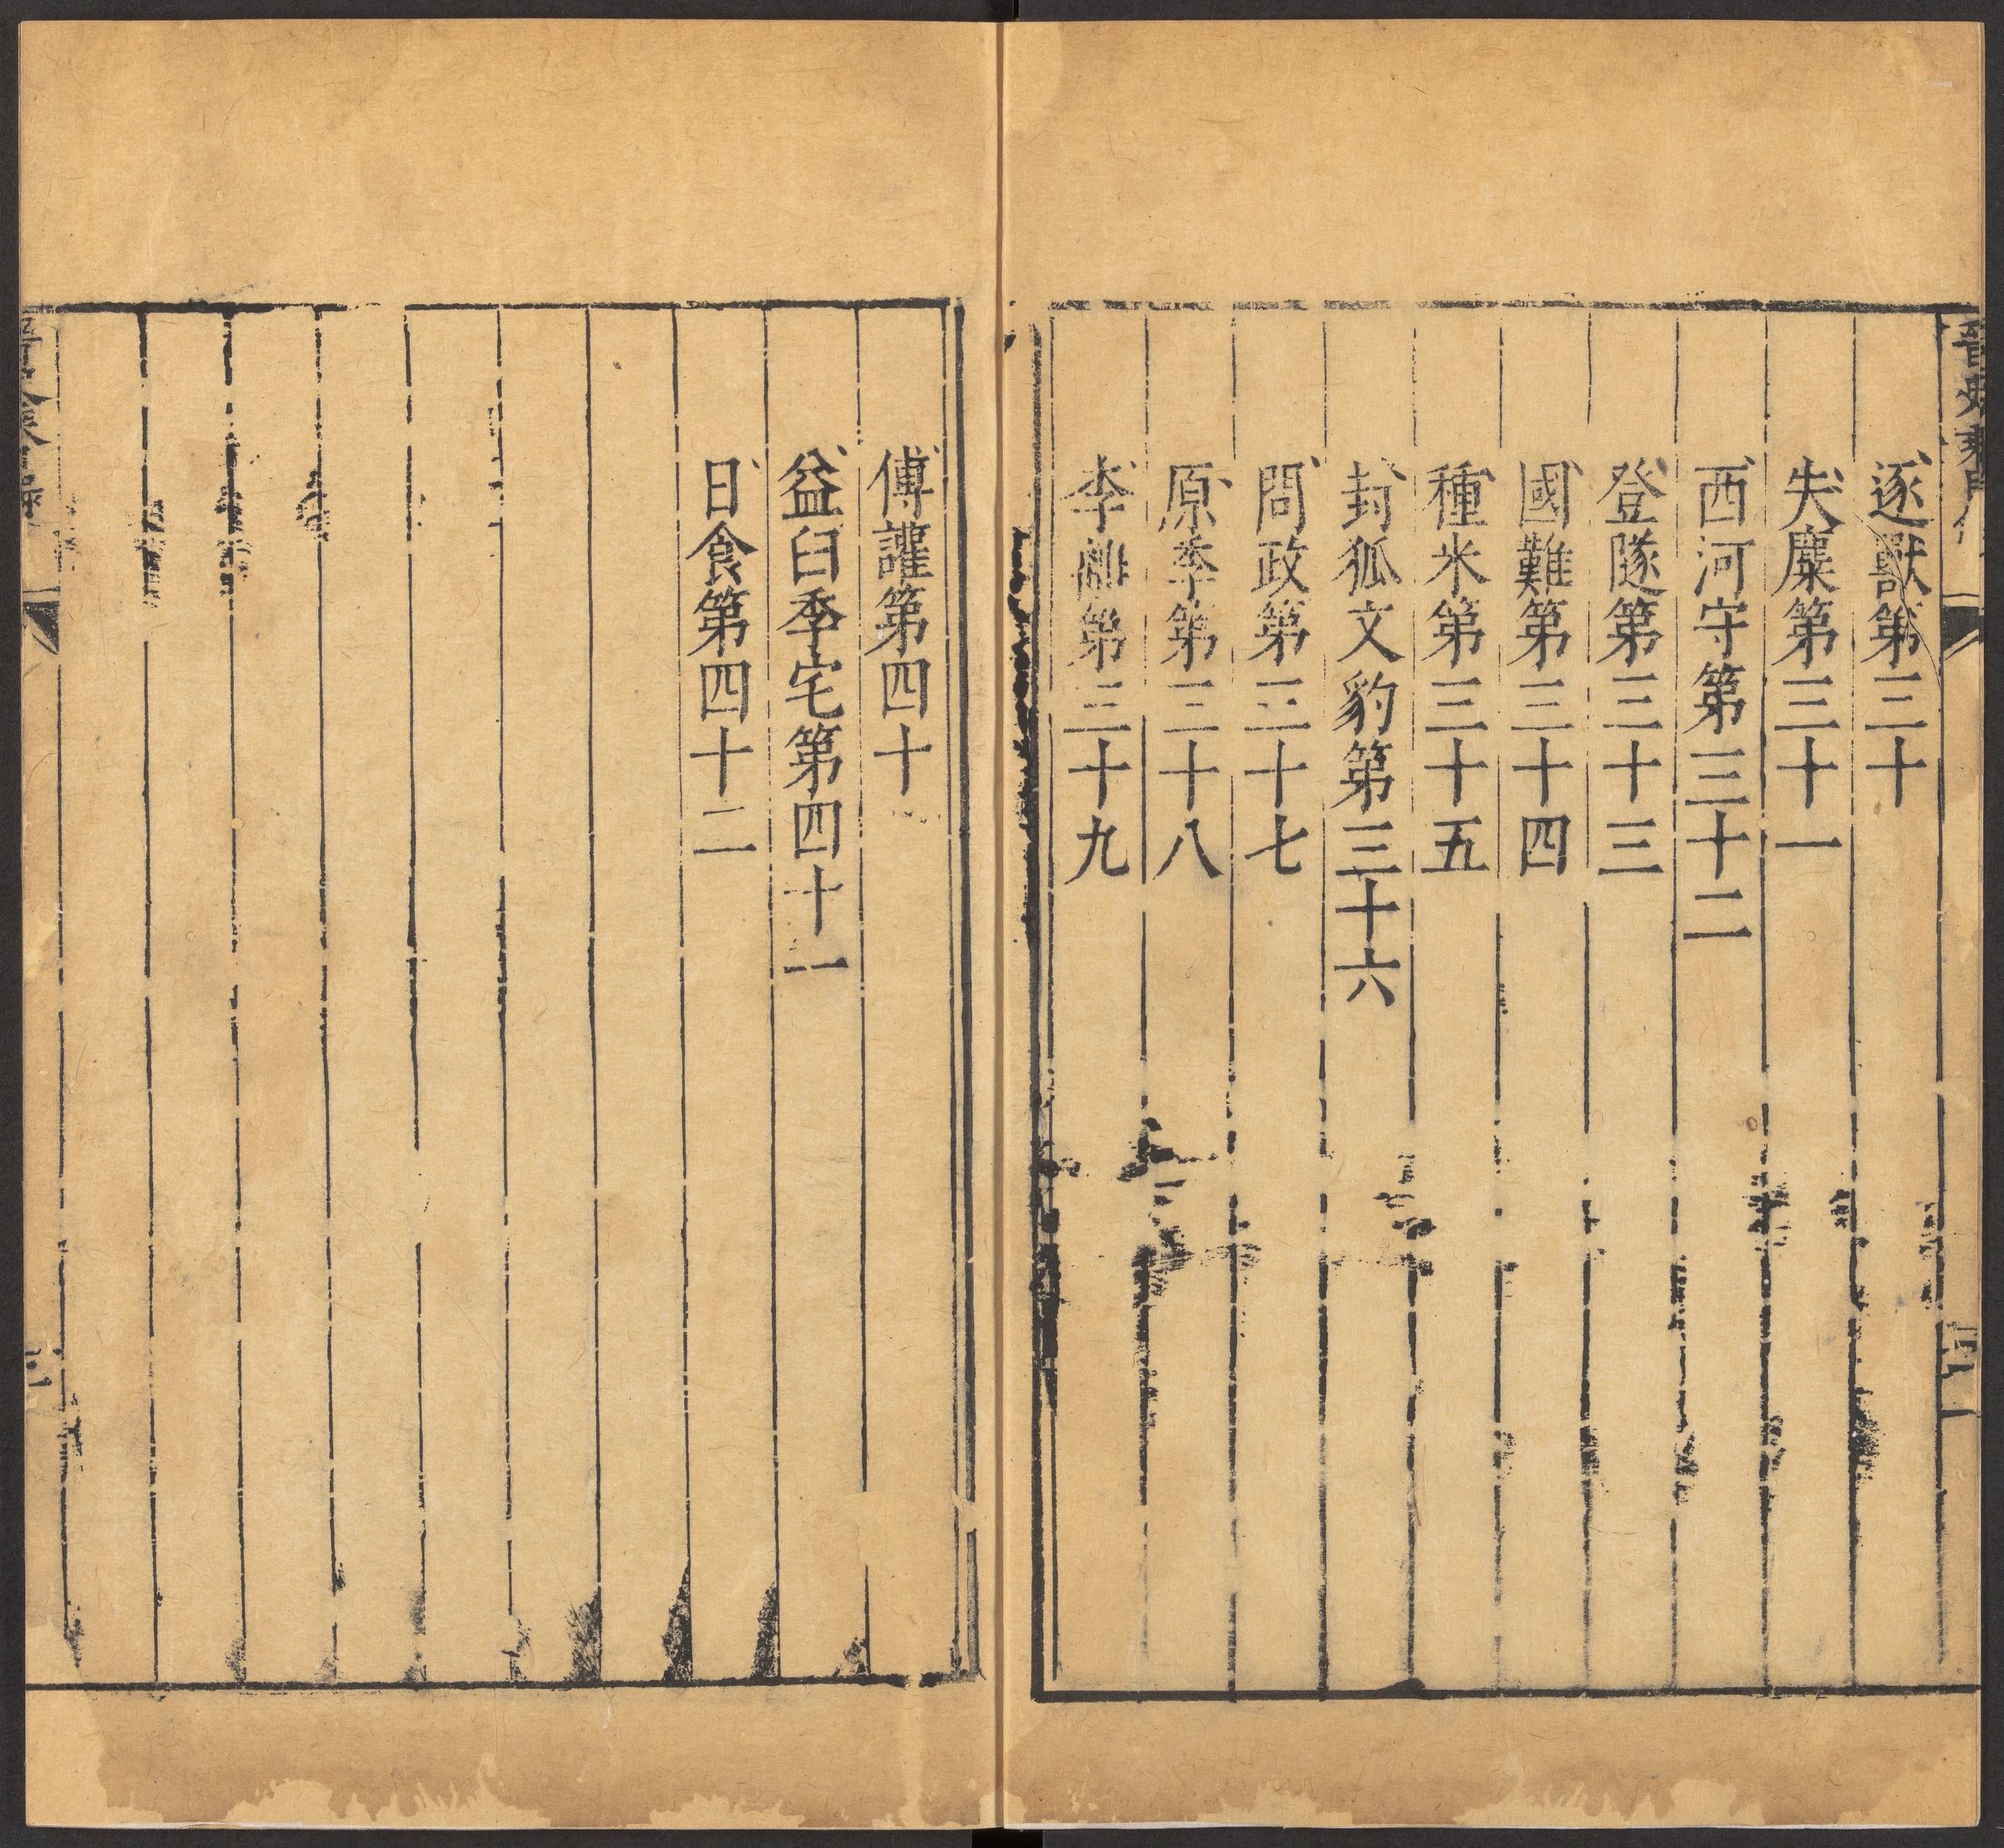 逐獸第三十
失麋第三十一
西河守第三十二
登隧第三十三
國難第三十四
種米第三十五
封狐文豹第三十六
問政第三十七
原季第三十八
李離第三十九
傅讙第四十
益臼季宅第四十一
日食第四十二